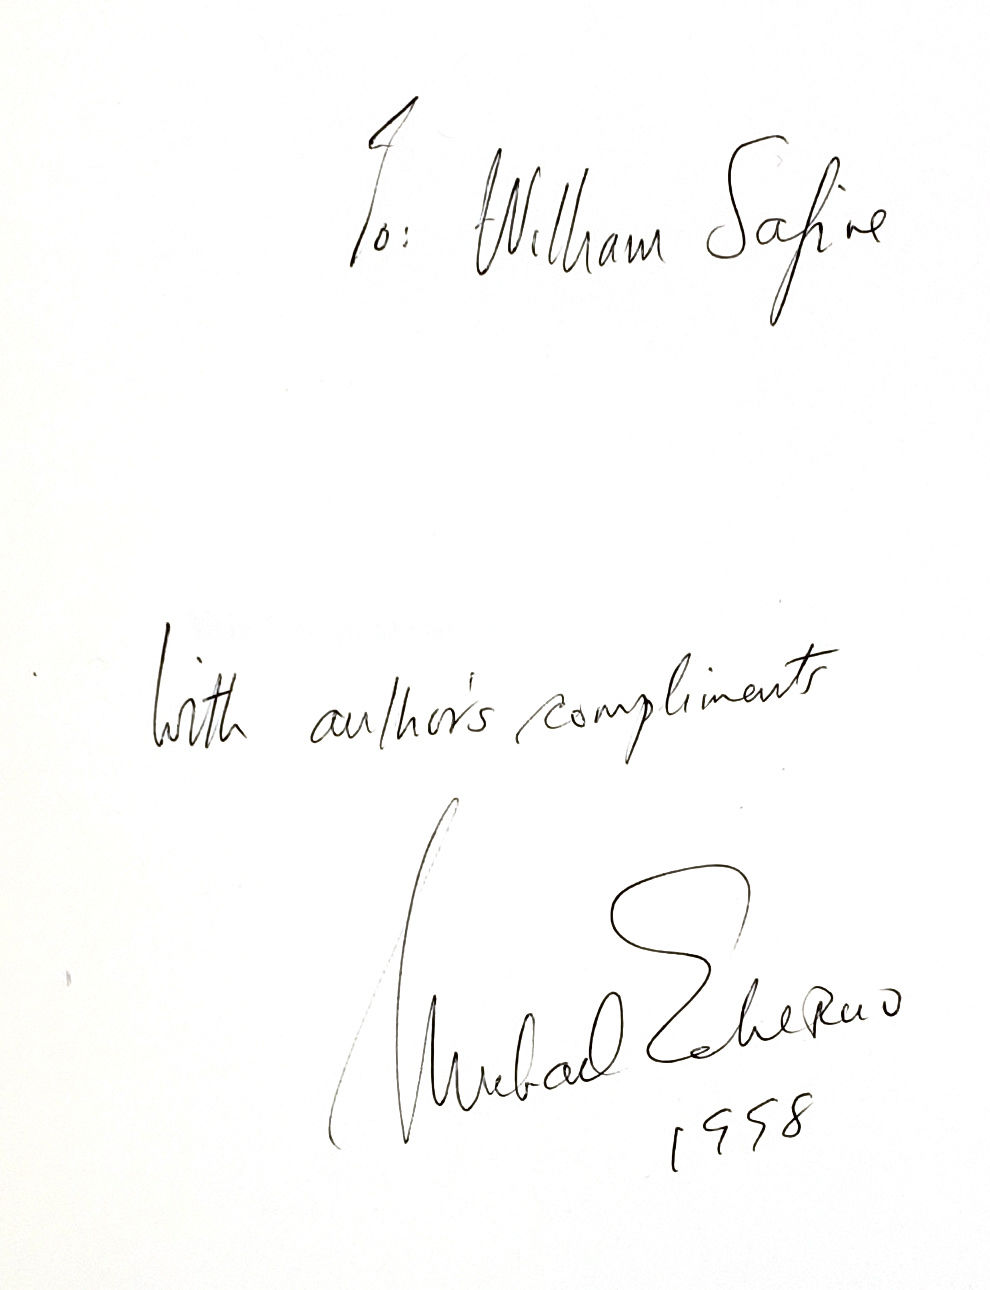 To: William Safire
With author's compliments
Michael Echeruo
1998